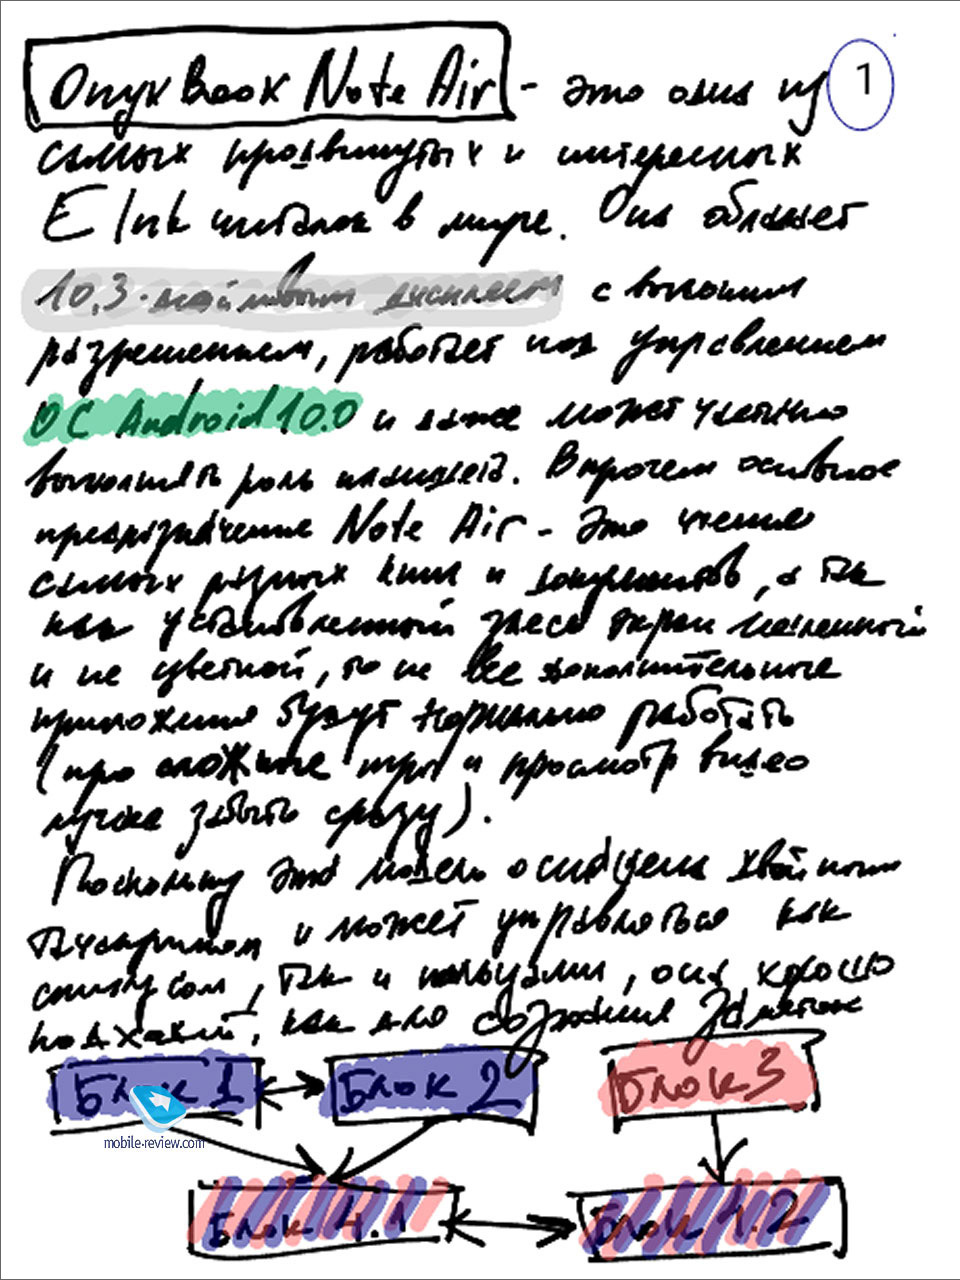 Onyx Book Note Air - это одна из 1
самых продвинутых и интересных
E Ink читалок в мире. Она обладает
10,3-дюймовым дисплеем с высоким
разрешением, работает под управлением
ОС Android 10.0 и даже может успешно
выполнять роль планшета. Впрочем основное
предназначение Note Air - это чтение
самых разных книг и документов, а так
как установленный здесь экран медленный
и не цветной, то не все дополнительные
приложения будут нормально работать
(про сложные игры и просмотр видео
лучше забыть сразу).
Поскольку эта модель оснащена двойным
тачскрином и может управляться как
стилусом, так и пальцами, она хорошо
подходит, как для создания заметок
Блок 1 Блок 2 Блок 3
mobile-review.com
Блок 4.1 Блок 4.2